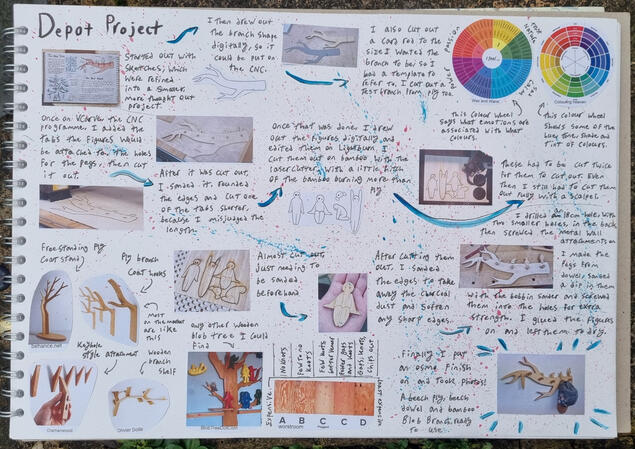 Depot Project
Started out with
sketches, which
were refined
into a smaller,
more thought out
project.
I then drew out
the branch shape
digitally, so it
could be put on
the CNC.
I also cut out
a card rod to the
size I wanted the
branch to be, so I
had a template to
refer to. I cut out a
test branch, from, ply too.
This colour wheel
says what emotions are
associated with what
colours.
this colour wheel
shows some of
the hues, tones, shade and
tint of colours.
Once on VCarve, the CNC
programme, I added the
tabs the figures would
be attached to, the holes
for the pegs, then cut
it out.
After it was cut out,
I sanded it, rounded
the edges and cut one
of the tabs shorter,
because I misjudged the
length.
Once that was done, I drew
out the figures digitally, and
edited them on Lightburn, I
cut them out on bamboo, with the
laser cutter, with a little bitch
of the bamboo burning more than
ply
these had to be cut twice
for them to cut out. Even
then I still had to cut them
out fully with a scalpel.
I drilled an 18cm hole, with
two smaller holes, in the back,
then screwed the metal wall
attachments on
I made the
Pegs from
dowel, sanded
a dip in them
with the bobbin sander and screwed
them into the holes for extra
strength. I glued the figures
on and left them to dry.
Almost cut out,
just needing to
be sanded
beforehand
After cutting them
out, I sanded
the edges to take
away the charcoal
dust and soften
any sharp edges.
Finally I put
an osmo finish
on and took photos!
A beech ply, beech
dowel and bamboo
Blob Branch, ready
to use.
Free standing Ply
Coat stand
Ply branch
Coat hooks
most
on the market
are like
this
behance.net
Keyhole
style attachment
wooden
branch
shelf
Olivier Dollé
Only other wooden
blob tree I could
find
BlobTree.com
No knots
Few to no
knots
Expensive
Least expensive
A B C C D
workroom